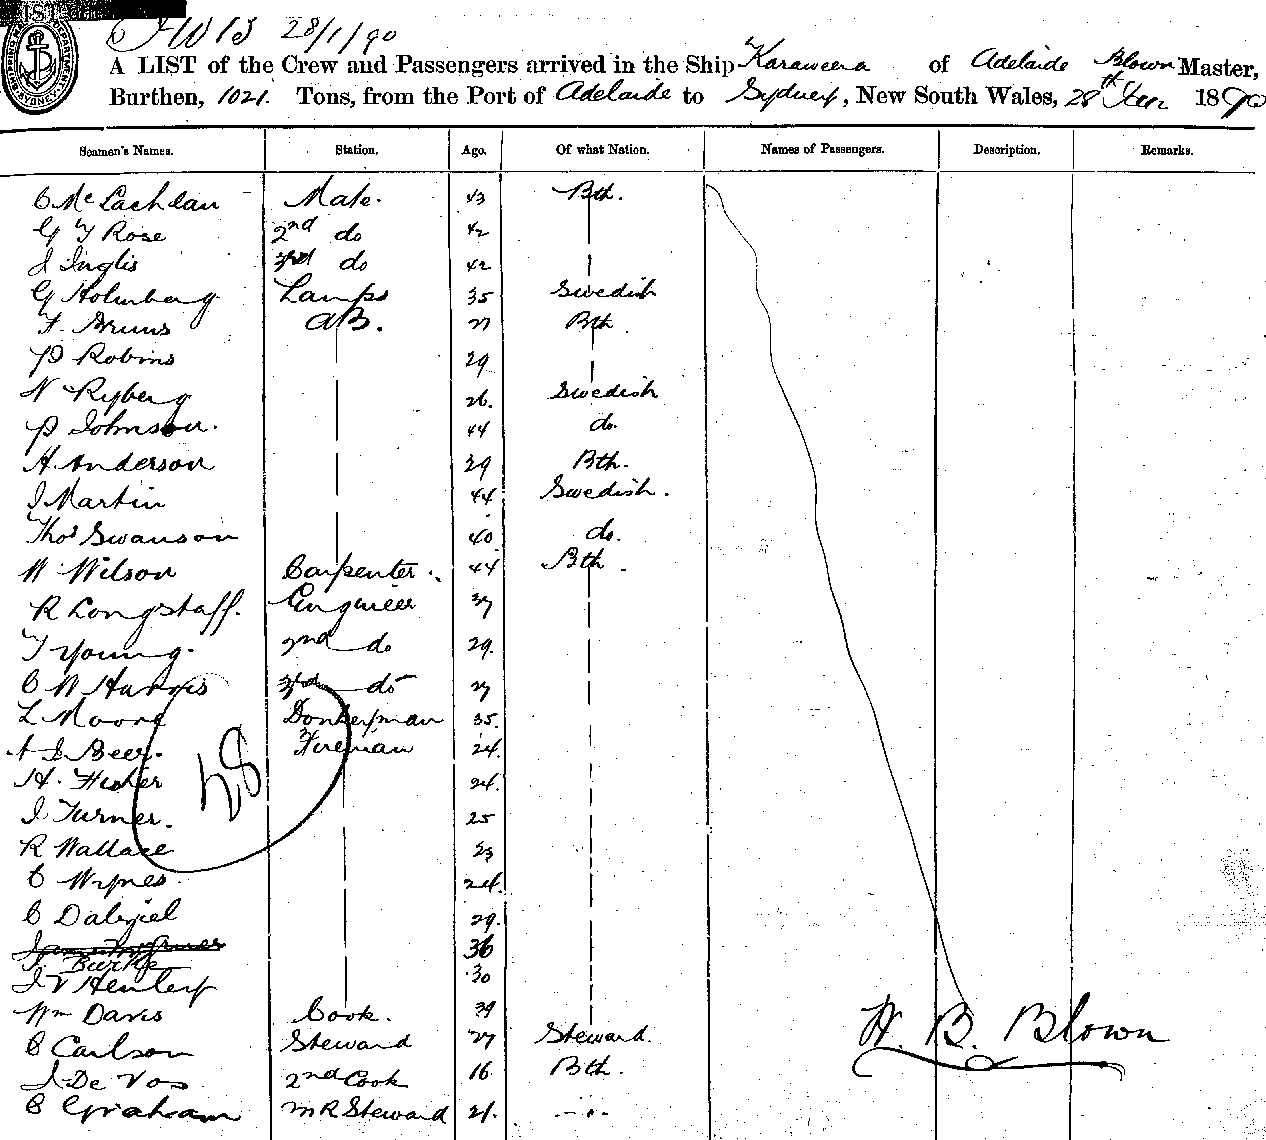 28/1/90
A LIST of the Crew and Passengers arrived in the Ship Karaweera of Adelaide Blown Master,
Burthen, 1021. Tons, from the Port of Adelaide to Sydney, New South Wales, 28th Jan 1890
Seamen's Names. Station. Age. Of what Nation. Names of Passengers. Description. Remarks.
C McLachlan Mate. 43 Bth.
G Y Rose 2nd do 42
J Inglis 3rd do 42
G Holmberg Lamps 35 Swedish
F. Bruns AB. 27 Bth
P Robins 29
N Ryberg 26. Swedish
P Johnson. 44 do.
A. Anderson 29 Bth.
J Martin 44 Swedish.
Thos Swanson 40 do.
W Wilson Carpenter. 44 Bth.
R Longstaff. Engineer 37
T Young. 2nd do 29.
C W Harris 3rd do 27
L Moore Donkeyman 35.
Beer. Fireman 24.
H. Fisher 24.
J. Turner. 25
R Wallace 23
C Wynes. 24.
C Dalziel 29.
36
Burke
J V Henley 30
Wm Davis Cook. 39
C Carlson Steward 27 Steward.
J De Vos 2nd Cook 16 Bth.
C Graham m R Steward 21.
28
H. B. Blown